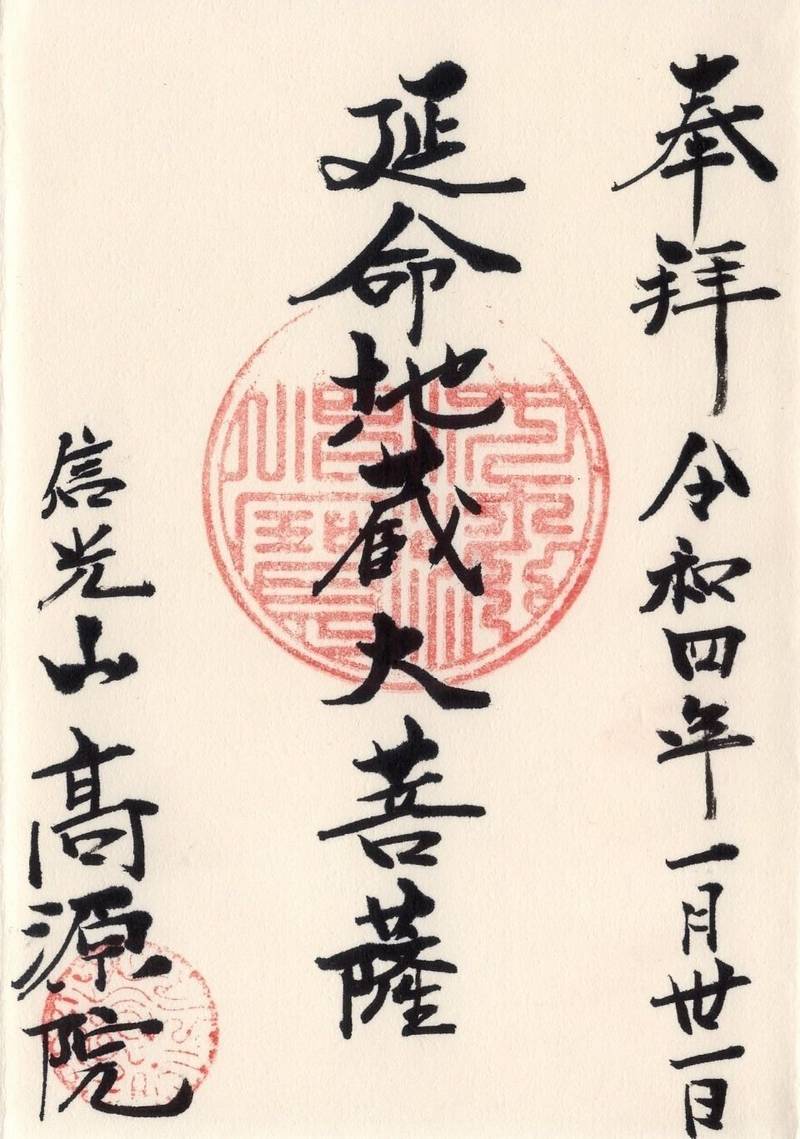 奉拝 令和四年一月世一日
延命地蔵大菩薩
信光山 髙源院